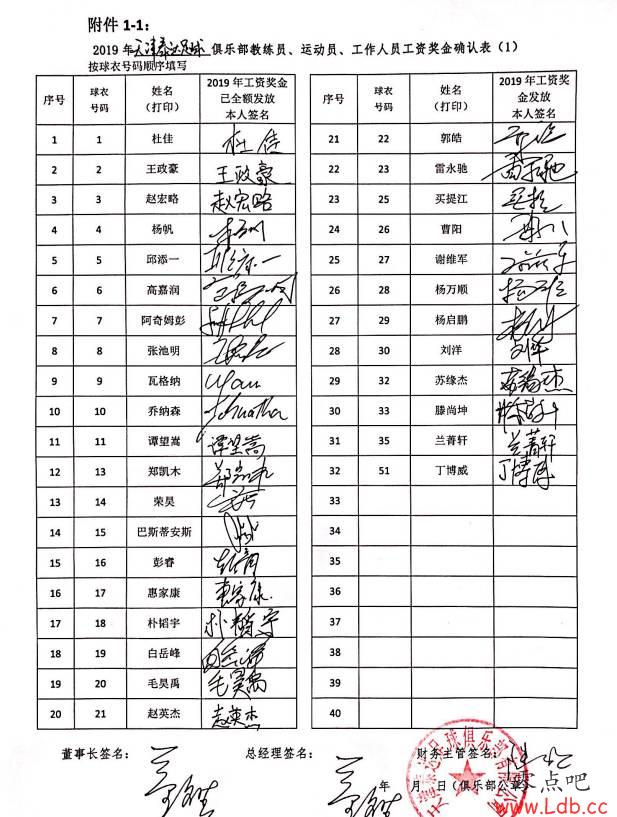 附件 1-1：
2019 年天津泰达足球俱乐部教练员、运动员、工作人员工资奖金确认表（1）
按球衣号码顺序填写
序号 球衣号码 姓名（打印） 2019 年工资奖金已全额发放本人签名
1 1 杜佳 杜佳
2 2 王政豪 王政豪
3 3 赵宏略 赵宏略
4 4 杨帆
5 5 邱添一 邱添一
6 6 高嘉润
7 7 阿奇姆彭
8 8 张池明
9 9 瓦格纳
10 10 乔纳森
11 11 谭望嵩 谭望嵩
12 13 郑凯木
13 14 荣昊
14 15 巴斯蒂安斯
15 16 彭睿
16 17 惠家康 惠家康
17 18 朴韬宇 朴韬宇
18 19 白岳峰
19 20 毛昊禹 毛昊禹
20 21 赵英杰 赵英杰
序号 球衣号码 姓名（打印） 2019 年工资奖金发放本人签名
21 22 郭皓
22 23 雷永驰
23 25 买提江
24 26 曹阳
25 27 谢维军
26 28 杨万顺
27 29 杨启鹏
28 30 刘洋 刘洋
29 32 苏缘杰 苏缘杰
30 33 滕尚坤
31 35 兰菁轩 兰菁轩
32 51 丁博威 丁博威
33
34
35
36
37
38
39
40
董事长签名： 总经理签名： 财务主管签名：
年 月 日（俱乐部公章）
零点吧
www.Ldb.cc